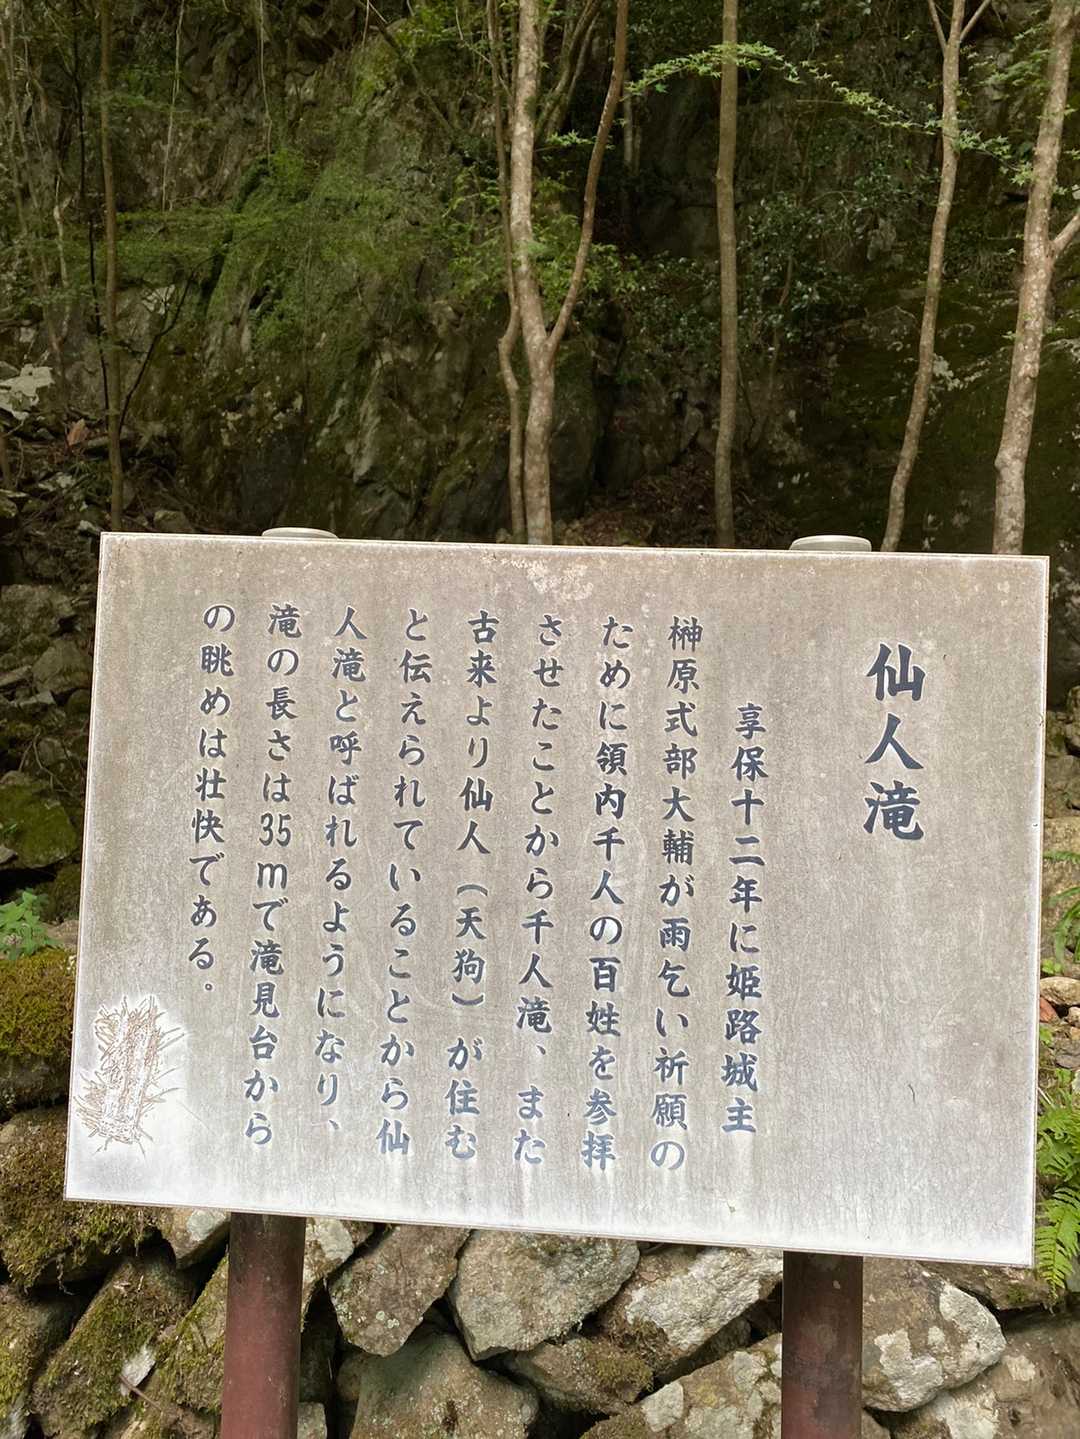 仙人滝
享保十二年に姫路城主
榊原式部大輔が雨乞い祈願の
ために領内千人の百姓を参拝
させたことから千人滝、また
古来より仙人（天狗）が住む
と伝えられていることから仙
人滝と呼ばれるようになり、
滝の長さは35mで滝見台から
の眺めは壮快である。